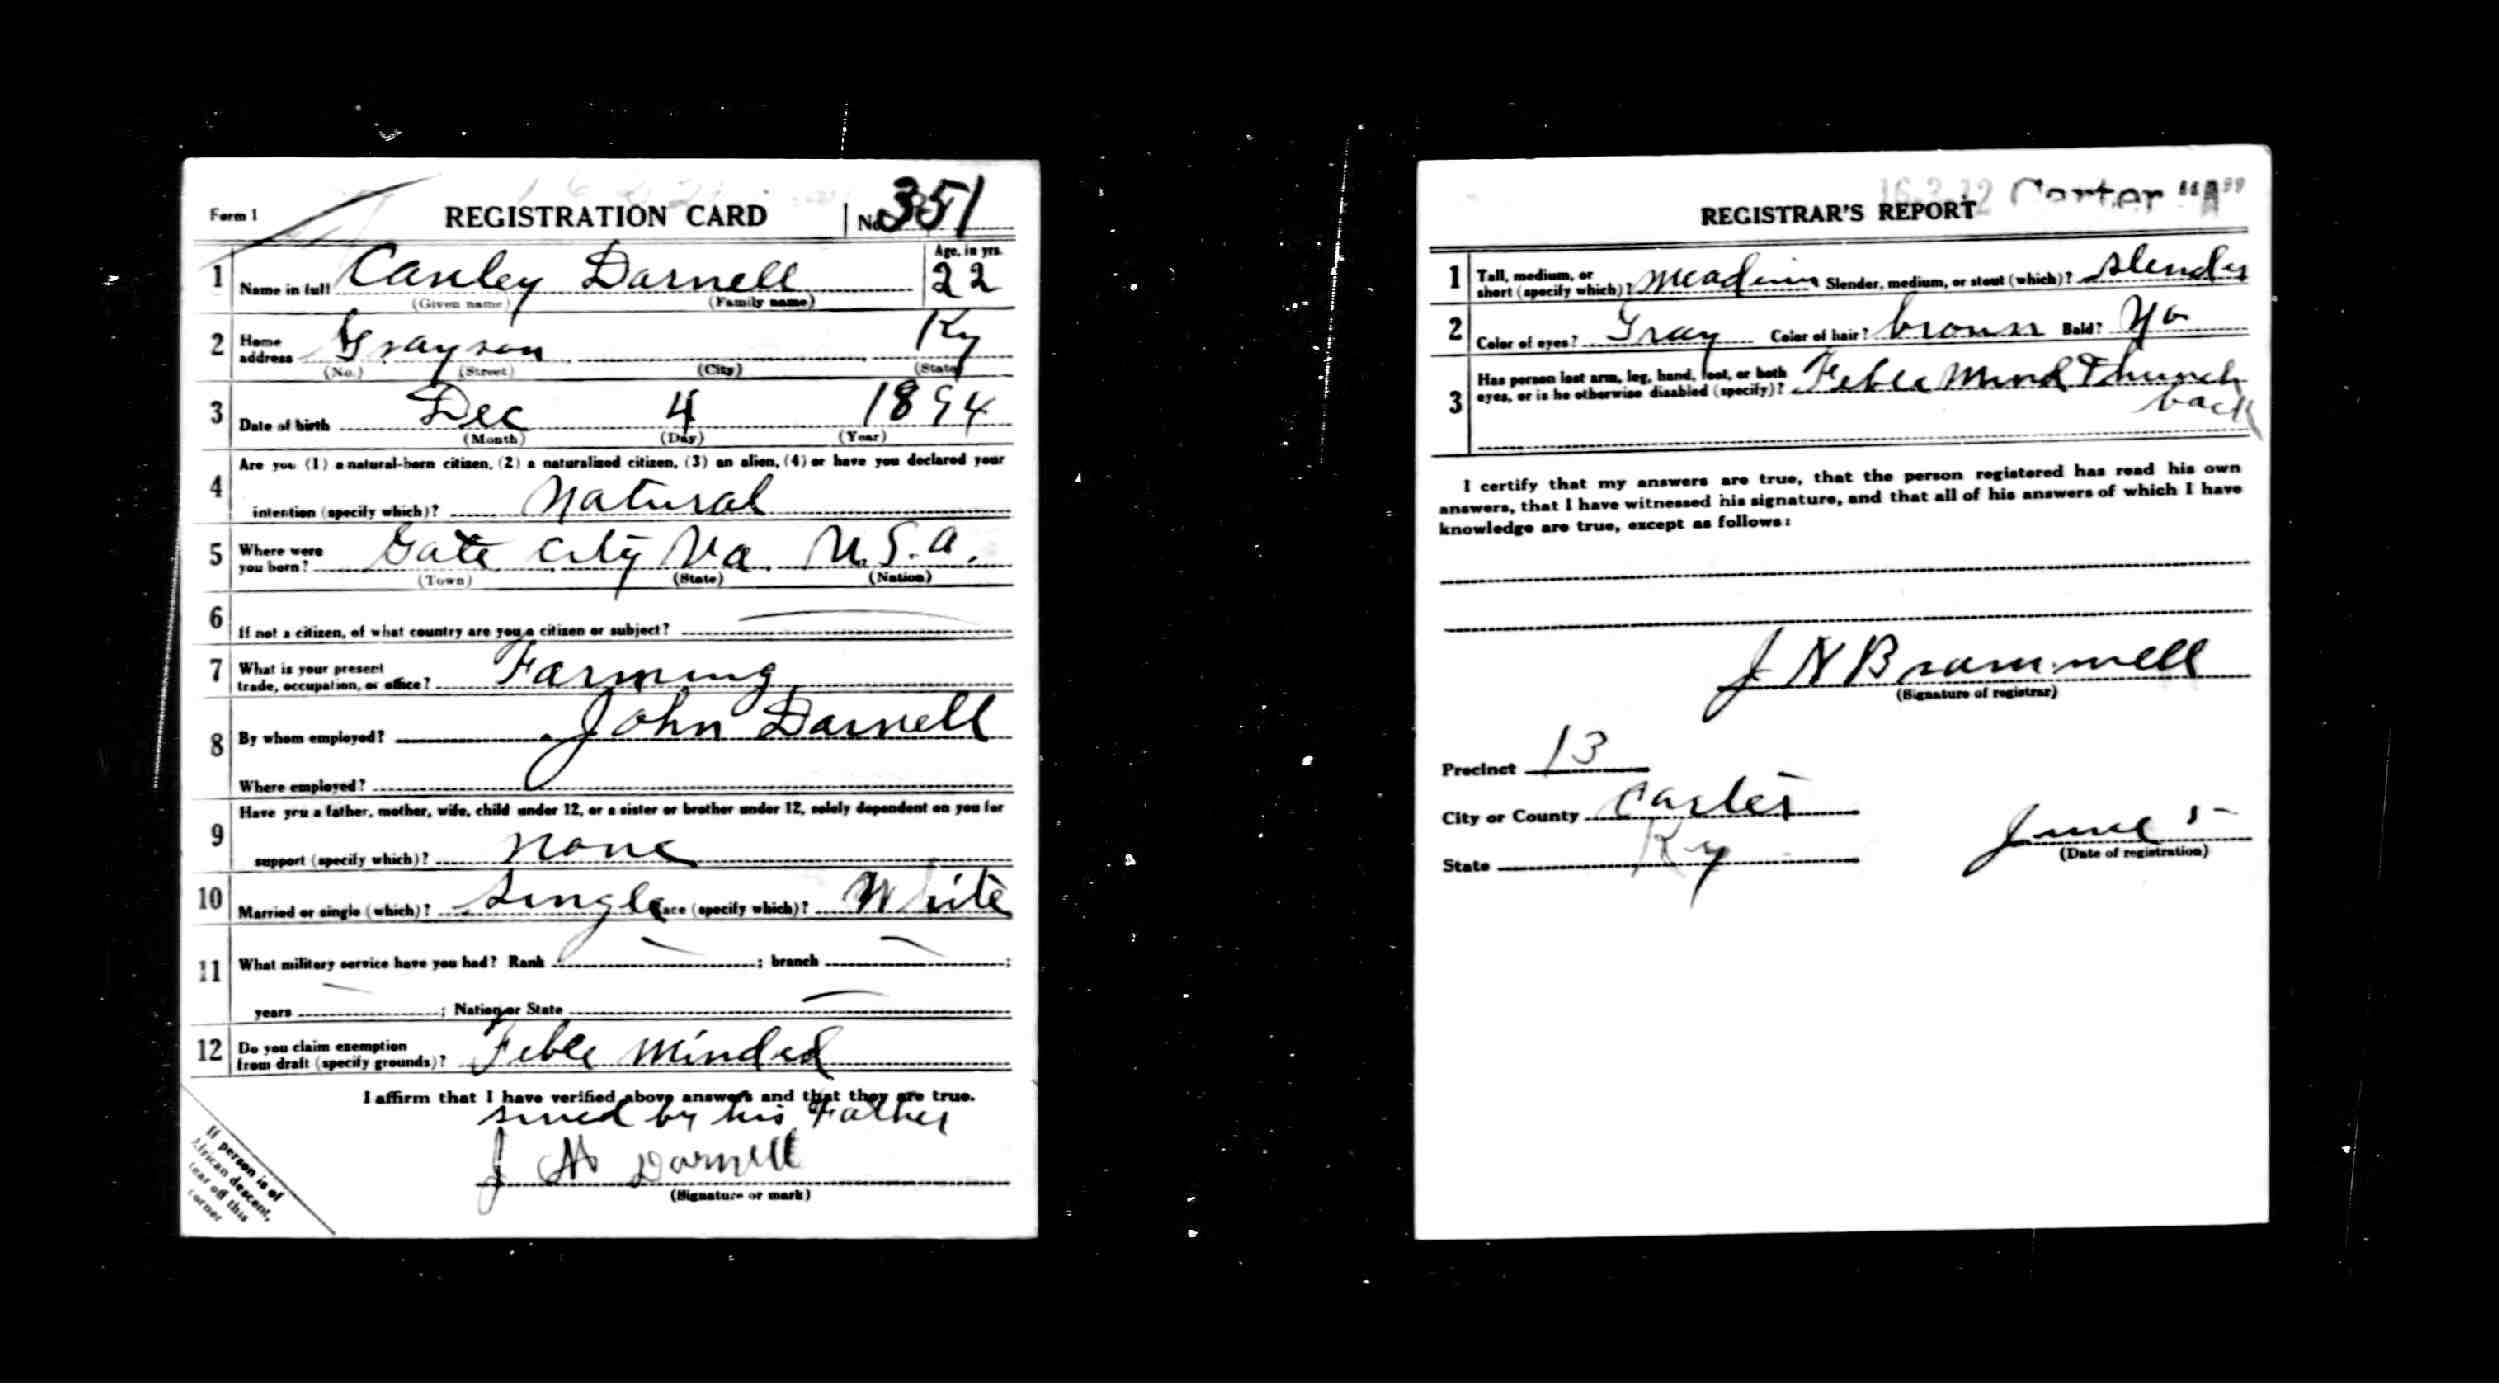 Form 1
REGISTRATION CARD No. 351
1 Name in full Canley Darnell Age, in yrs. 22
(Given name) (Family name)
2 Home address Grayson Ky
(No.) (Street) (City) (State)
3 Date of birth Dec 4 1894
(Month) (Day) (Year)
4 Are you (1) a natural-born citizen, (2) a naturalized citizen, (3) an alien, (4) or have you declared your
intention (specify which)? Natural
5 Where were you born? Gate City Va. U.S.A.
(Town) (State) (Nation)
6 If not a citizen, of what country are you a citizen or subject?
7 What is your present trade, occupation, or office? Farming
8 By whom employed? John Darnell
Where employed?
9 Have you a father, mother, wife, child under 12, or a sister or brother under 12, solely dependent on you for
support (specify which)? None
10 Married or single (which)? Single Race (specify which)? White
11 What military service have you had? Rank ; branch ;
years ; Nation or State
12 Do you claim exemption from draft (specify grounds)? Feble minded
I affirm that I have verified above answers and that they are true.
sined by his Father
J H Darnell
(Signature or mark)
If person is of
African descent,
tear off this
corner
Carter "A"
REGISTRAR'S REPORT
1 Tall, medium, or short (specify which)? Meadium Slender, medium, or stout (which)? Slender
2 Color of eyes? Gray Color of hair? brown Bald? No
3 Has person lost arm, leg, hand, foot, or both eyes, or is he otherwise disabled (specify)? Feble Mind & hunch
back
I certify that my answers are true, that the person registered has read his own
answers, that I have witnessed his signature, and that all of his answers of which I have
knowledge are true, except as follows:
J N Brammell
(Signature of registrar)
Precinct 13
City or County Carter
State Ky
June 5
(Date of registration)